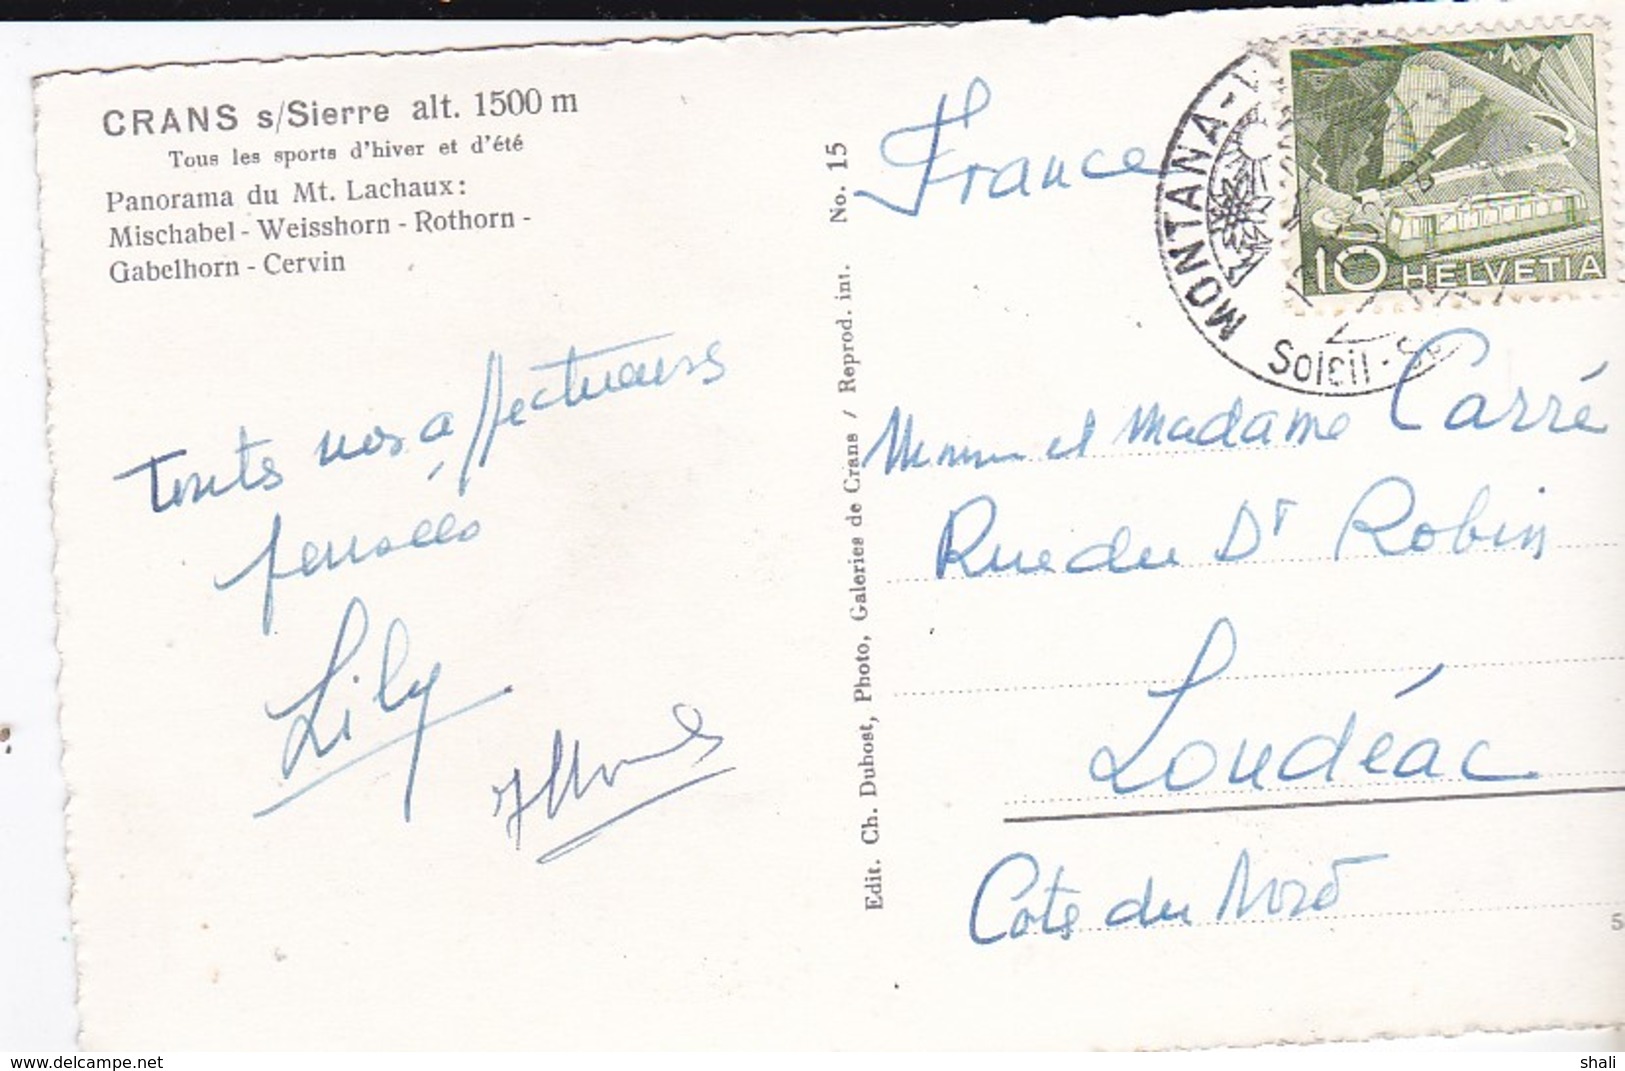 CRANS s/Sierre alt. 1500 m
Tous les sports d'hiver et d'été
Panorama du Mt. Lachaux:
Mischabel - Weisshorn - Rothorn -
Gabelhorn - Cervin
Toutes nos affectueuses
pensées
Lily
Edit. Ch. Dubost, Photo, Galeries de Crans / Reprod. int. No. 15
France
MONTANA-V
Soleil - S
10 HELVETIA
et Madame Carré
Rue du Dr Robin
Loudéac
Côtes du Nord
www.delcampe.net
shali